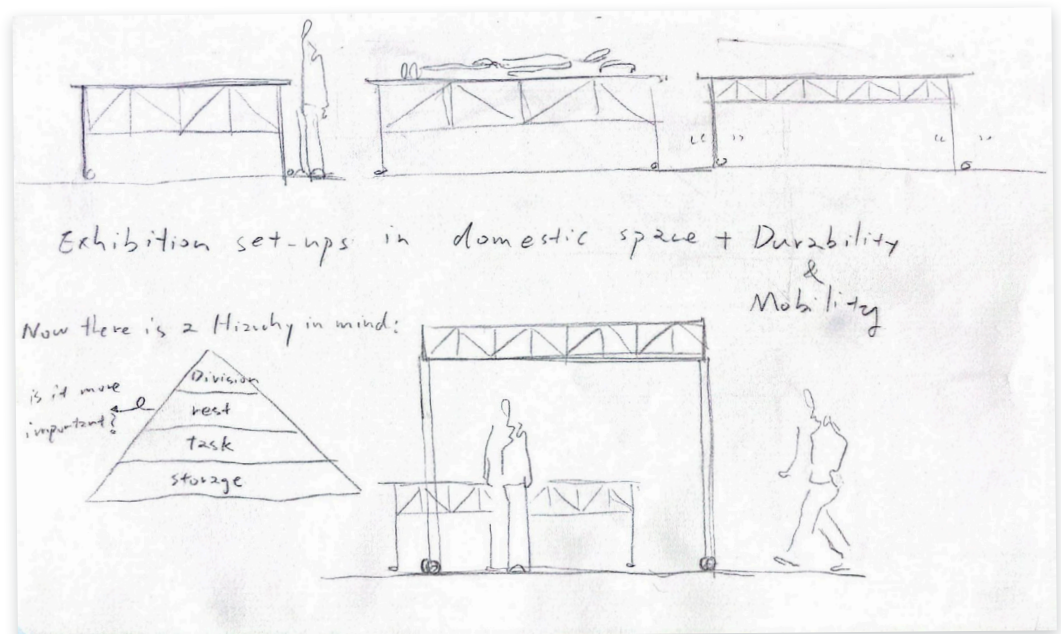 Exhibition set-ups in domestic space + Durability
&
Mobility
Now there is a Hirachy in mind:
is it more
important?
Division
rest
task
storage